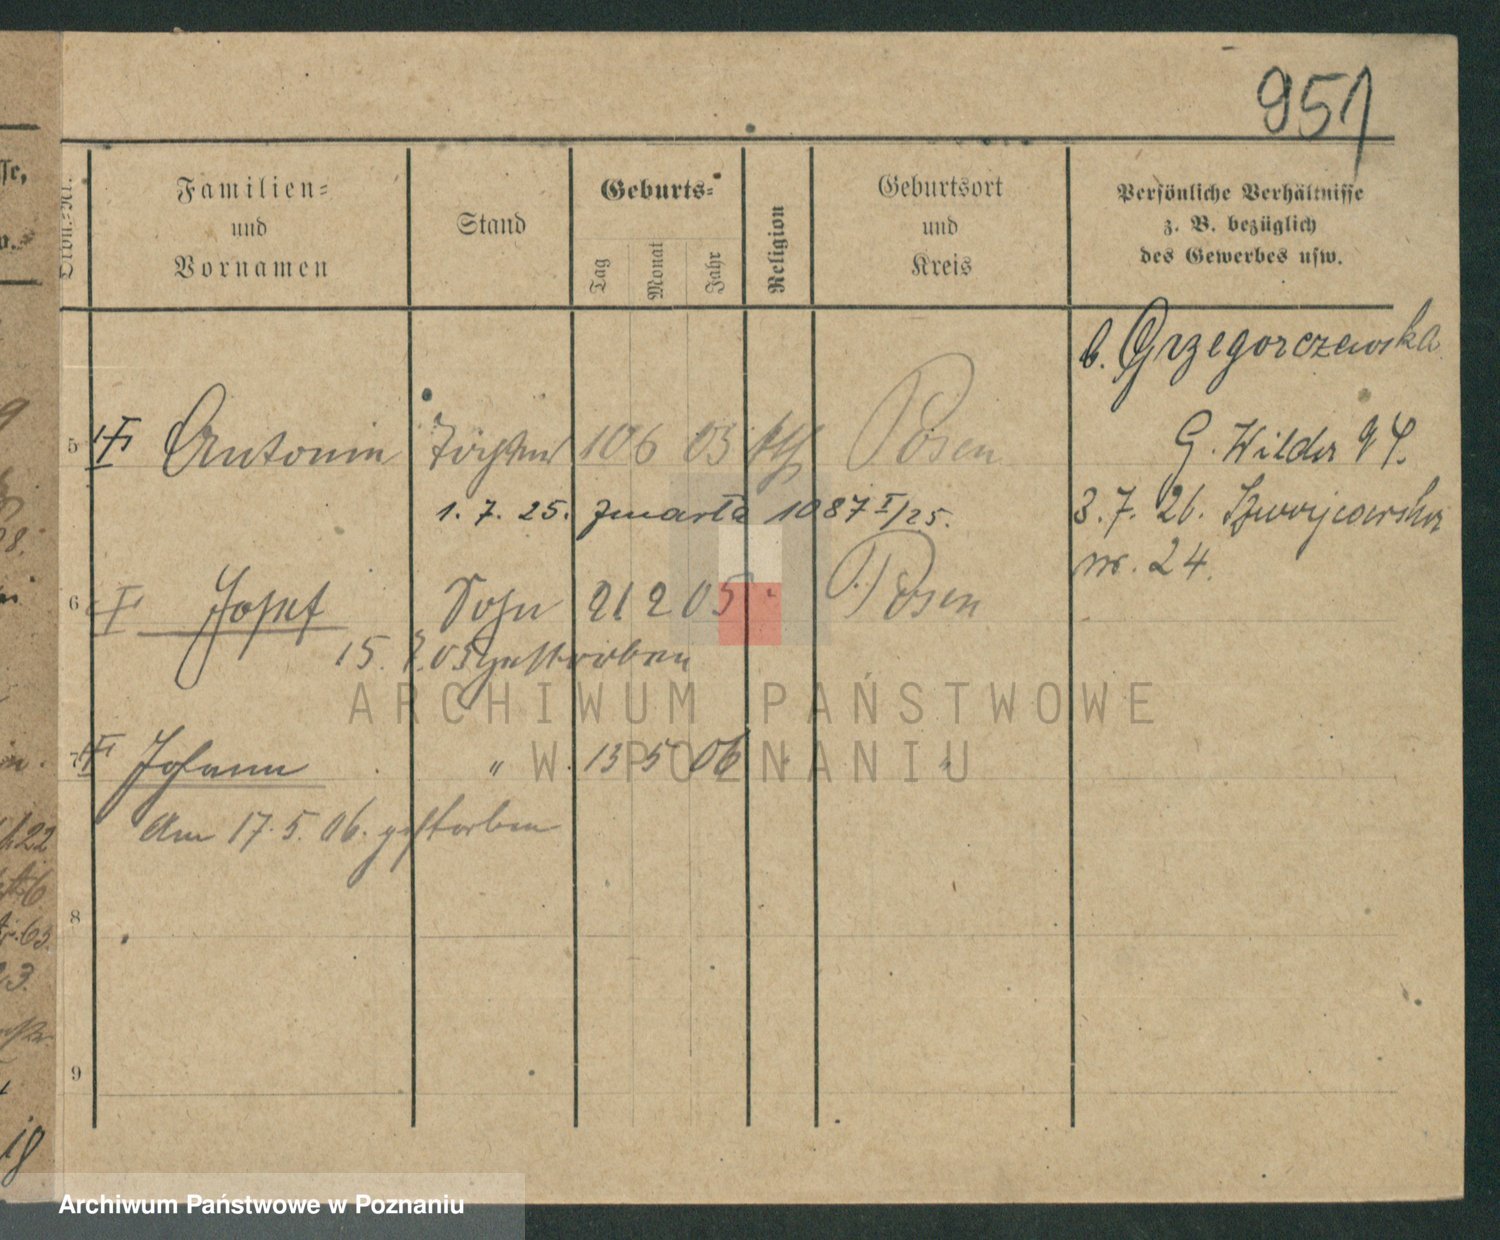 951
Ordn.-Nr.
Familien-
und
Vornamen
Stand
Geburts-
Tag
Monat
Jahr
Religion
Geburtsort
und
Kreis
Persönliche Verhältnisse
z. B. bezüglich
des Gewerbes usw.
b. Grzegorczewska
5 Antonin Tochter 10 6 03 kth Posen
G. Wilda 94.
1. 7. 25. zmarła 1087 I/25.
3. 7. 26.
nr. 24.
6 I Josef Sohn 21 2 05 " Posen
15. 05 gestorben
7 Johann " 13 5 06 " "
Am 17. 5. 06. gestorben
8
9
ARCHIWUM PAŃSTWOWE
W POZNANIU
Archiwum Państwowe w Poznaniu